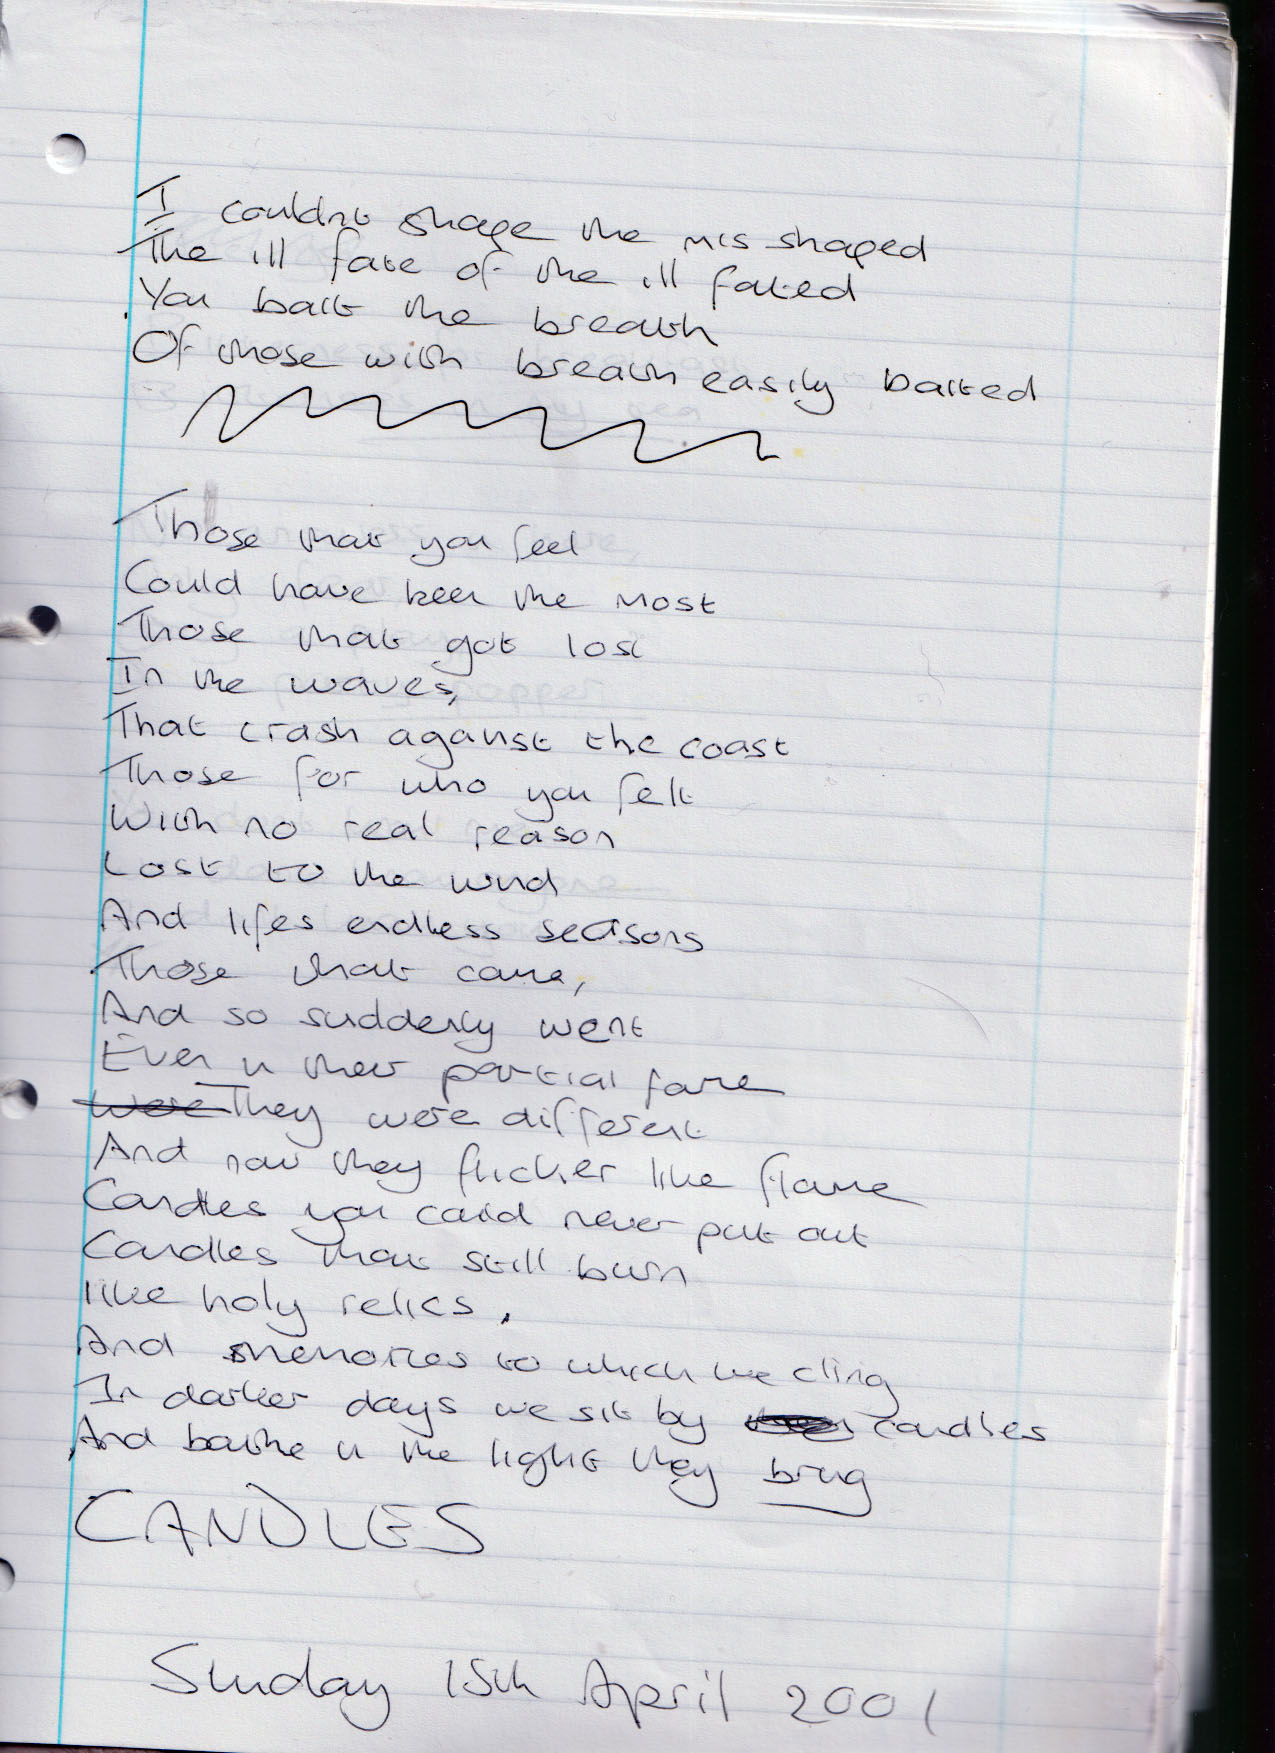 I couldnt shape the mis shaped
The ill fate of the ill fated
You bait the breath
Of those with breath easily baited
Those that you feel
Could have been the most
Those that got lost
In the waves,
That crash against the coast
Those for who you felt
With no real reason
Lost to the wind
And lifes endless seasons
Those that came,
And so suddenly went
Even in their partial fame
were They were different
And now they flicker like flame
Candles you could never put out
Candles that still burn
like holy relics,
And memories to which we cling
In darker days we sit by candles
And bathe in the light they bring
CANDLES
Sunday 15th April 2001